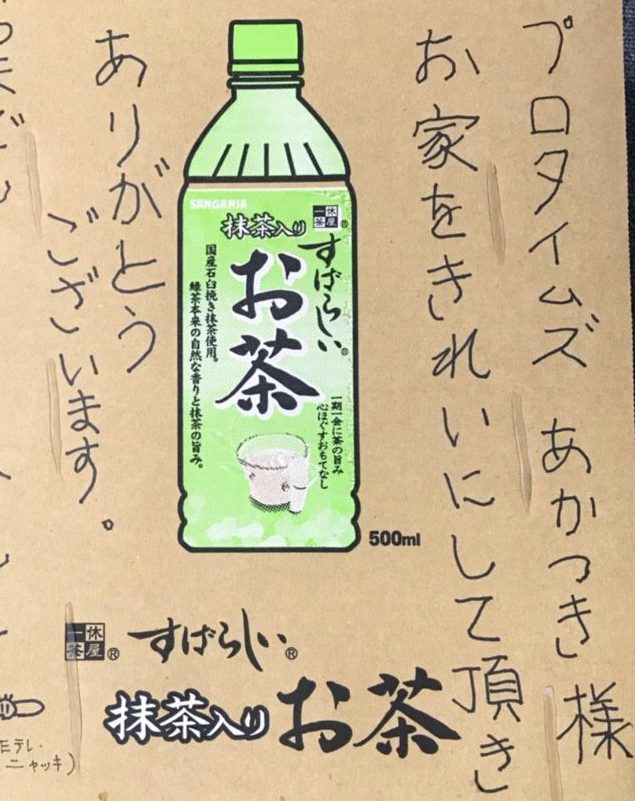 プロタイムズ あかつき様
お家をきれいにして頂き
ありがとう
ございます。
SANGARIA
一休茶屋®
抹茶入り
すばらしい®
お茶
国産石臼挽き抹茶使用。
緑茶本来の自然な香りと抹茶の旨み。
一期一会に茶の旨み
心ほぐすおもてなし
500ml
一休茶屋®
すばらしい®
抹茶入りお茶
ニャッキ)